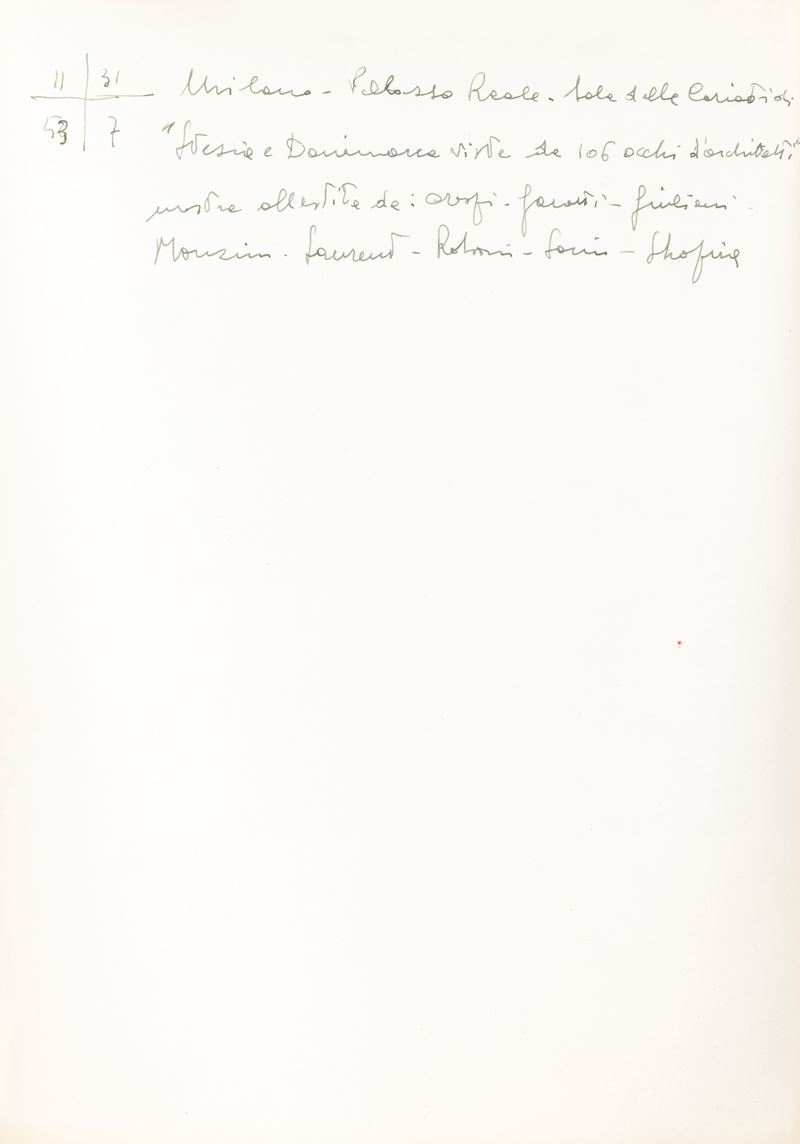 11 31
53 7
Milano - Palazzo Reale - Sala delle Cariatidi.
"Svezia e Danimarca viste da 106 occhi d'architetti"
mostra allestita da: Crespi - - Giuliani -
- Laurent - - - Shafira